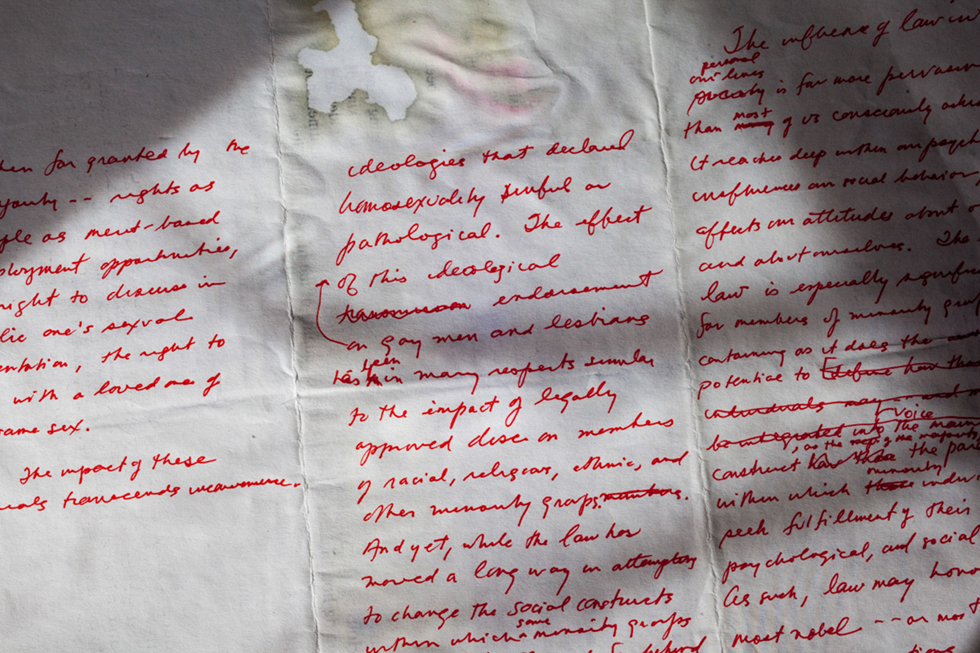 for granted by the
-- rights as
as merit-based
opportunities,
right to discuss in
one's sexual
the right to
with a loved one of
same sex.
The impact of these
transcends
ideologies that declared
homosexuality sinful or
pathological. The effect
of this ideological
endorsement
on gay men and lesbians
has been in many respects similar
to the impact of legally
approved disc on members
of racial, religious, ethnic, and
other minority groups members.
And yet, while the law has
moved a long way in attempting
to change the social constructs
within which some minority groups
The influence of law in
personal
our lives
society is far more pervasive
than most many of us consciously
It reaches deep within our
influences our social behavior,
affects our attitudes about
and about ourselves. The
law is especially
for members of minority
containing as it does the
potential to define how the
individuals may and
voice
be integrated into the main
, as the
construct how the the
minority
within which these
seek fulfillment of their
psychological, and social
As such, law may
most nobel -- or most